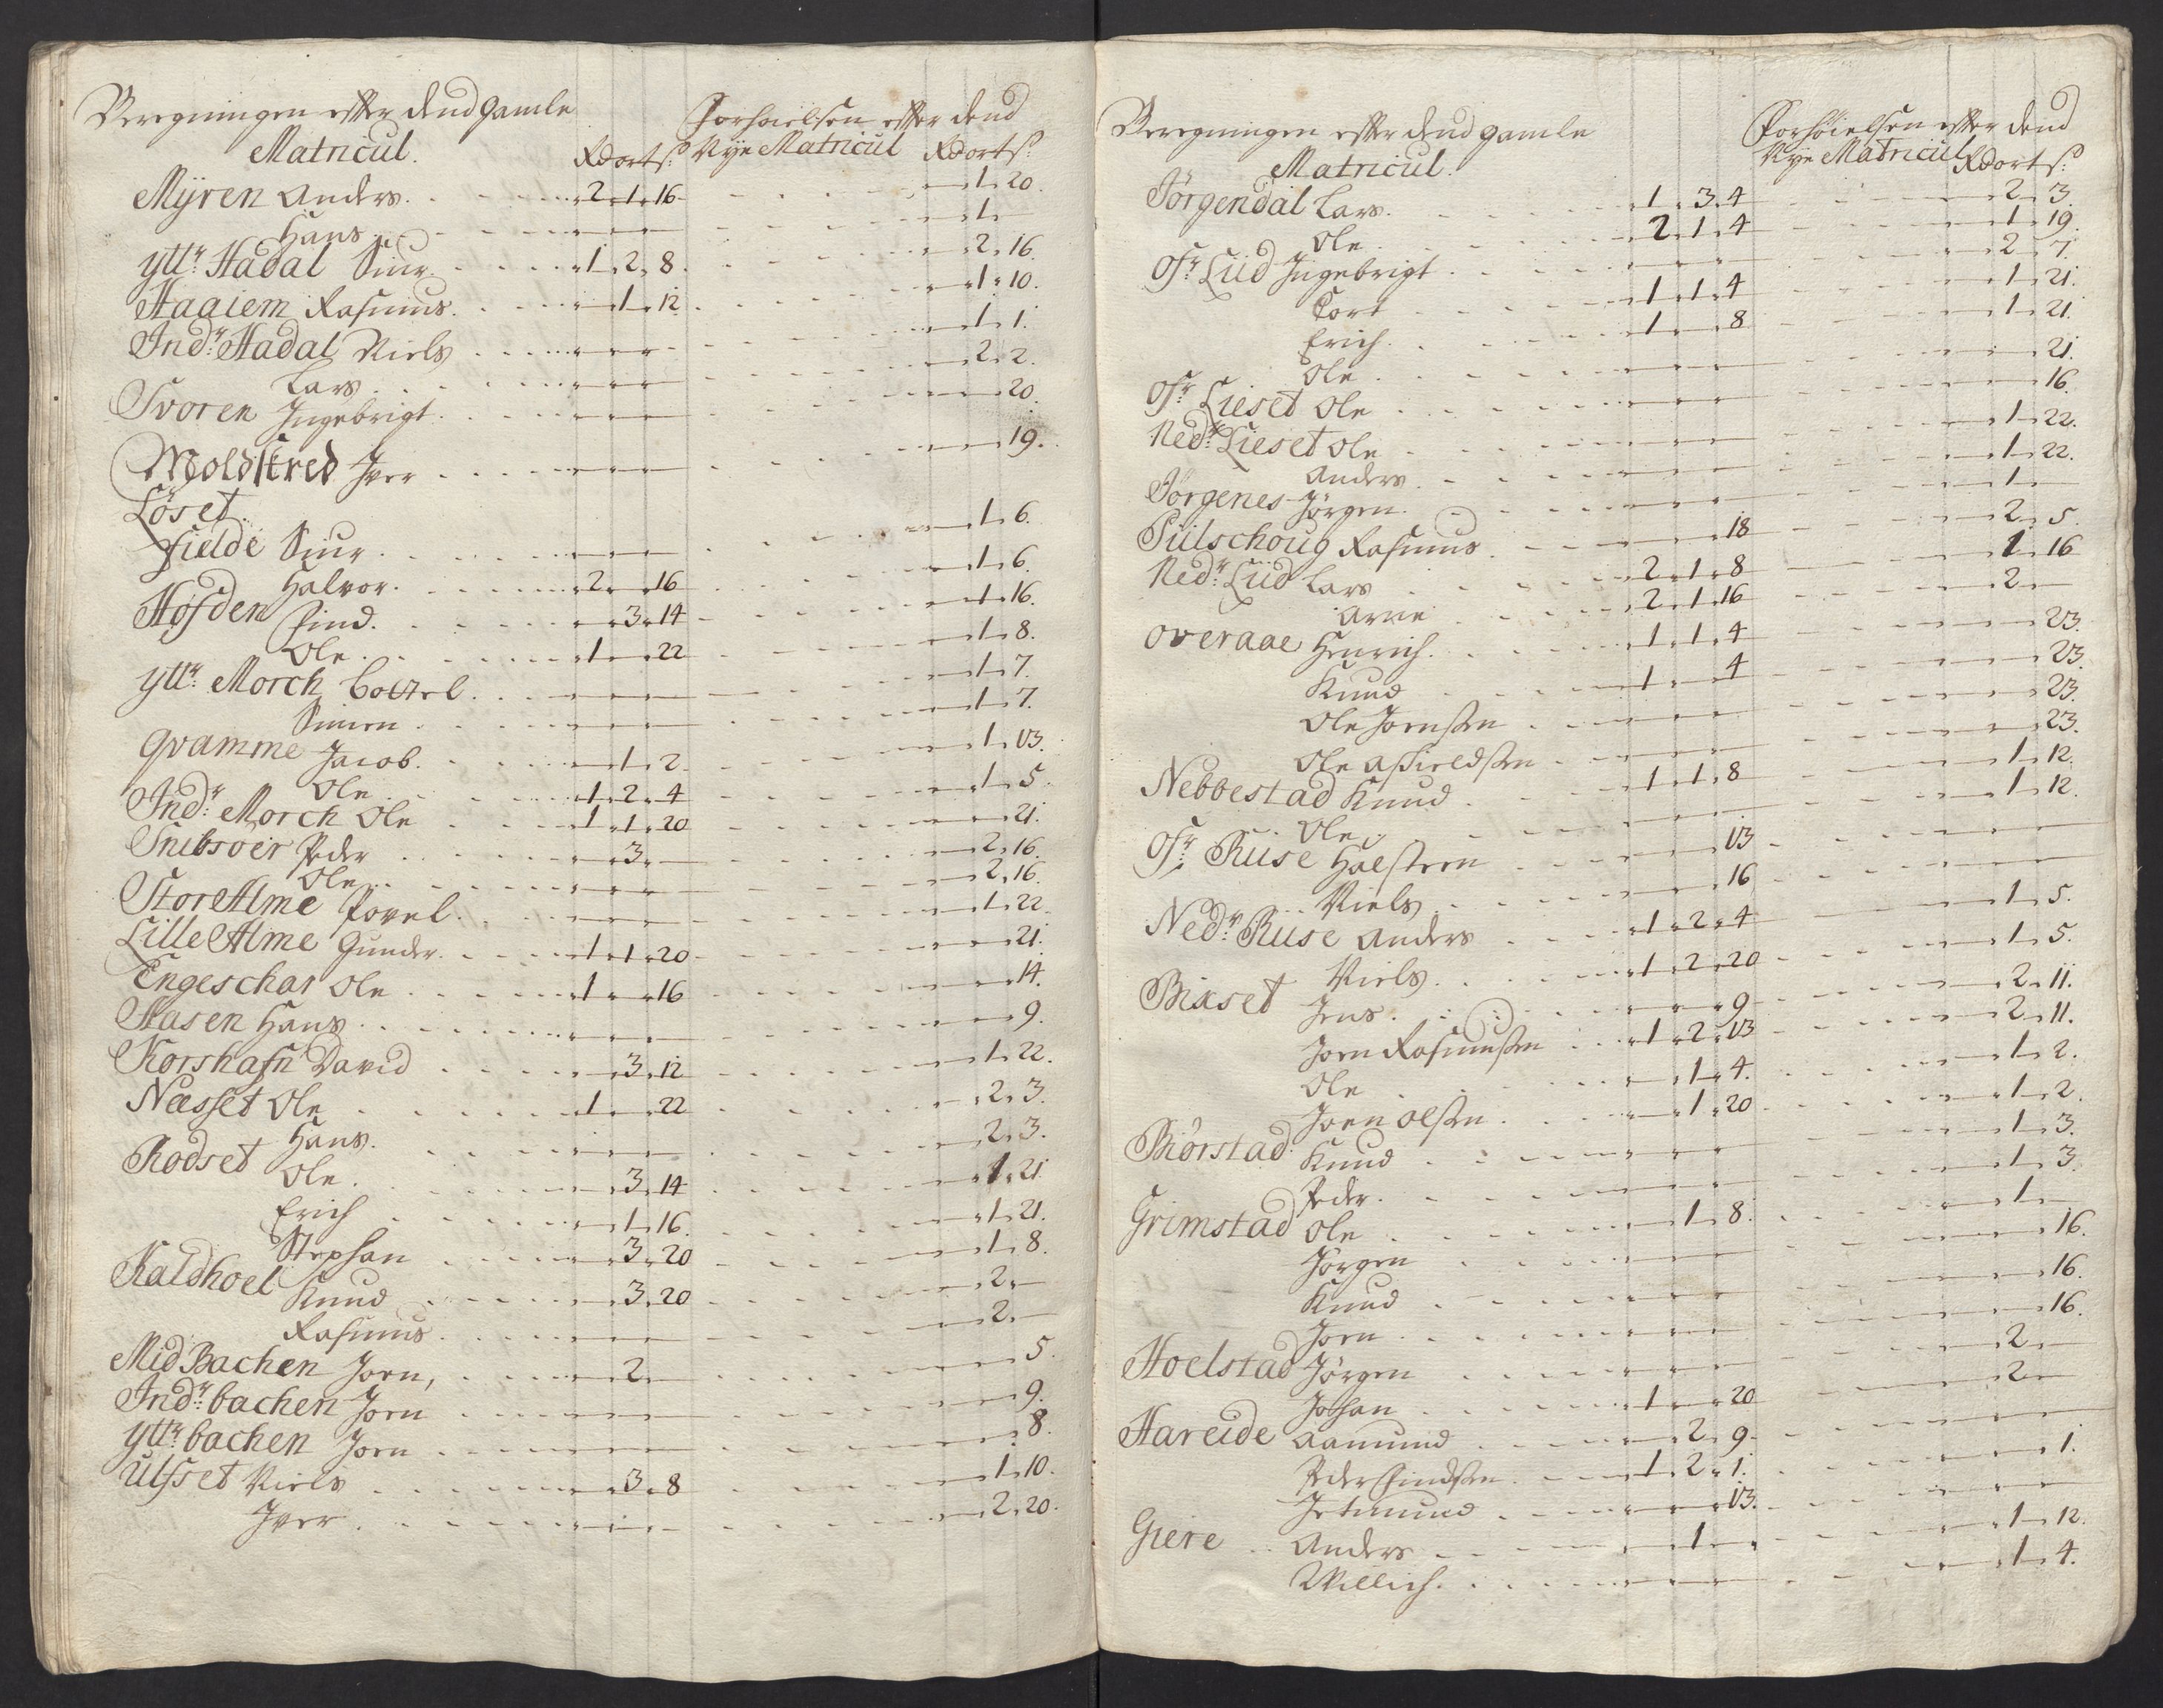 Beregningen efter dend gamle Matricul. Rd ort s: Forhøielsen efter dend Nye Matricul Rd ort s:
Myren Anders. 2 1 16 1 20.
Hans 1
Yttr: Hadal Siur. 1 2 8. 2 16.
Haaiem Rasmus. 1 12. 1 10.
Indr: Hadal Niels 1 1.
Lars 2 2.
Svoren Ingebrigt. 20.
Moldskred Iver 19.
Löset.
Fielde Siur. 1 6.
Halvor. 2 16 1 6.
Hofden Find. 3 14 1 16.
Ole. 1 22 1 8.
Yttr: Morch Bottel. 1 7.
Simen 1 7.
Qvamme Jacob. 1 2 1 13.
Ole 1 2 4 1 5.
Indr: Morch Ole 1 1 20 21.
Snibsöer Peder 3 2 16.
Ole 2 16.
Stor Alme Povel. 1 22.
Lille Alme Gunder. 1 1 20 21.
Engeschar Ole 1 16 14.
Hasen Hans 9.
Korshafn David 3 12 1 22.
Næsset Ole 1 22 2 3.
Hans. 2 3.
Rodset Ole. 3 14 1 21
Erich 1 16. 1 21.
Stephan 3 20 1 8.
Kaldhoel Knud 3 20 2
Rasmus. 2
Mid Bachen Jorn, 2 5.
Indr: bachen Jorn 9.
Yttr: bachen Jorn 8.
Ulfset Niels 3 8 1 10.
Iver. 2 20.
Beregningen efter dend gamle Matricul. Forhöielsen efter dend Nye Matricul Rd ort s:
Jörgendal Lars. 1 3 4 2 3.
Ole. 2 1 4 1 19.
Ofr: Liid Ingebrigt 2 7.
Tort 1 1 4 1 21.
Erich. 1 8 1 21.
Ole 21.
Ofr: Lieset Ole 16.
Nedr: Lieset Ole 1 22.
Anders 1 22.
Jörgenes Jörgen. 1
Pülschoug Rasmus 18 2 5.
Nedr: Liid Lars 2 1 8 1 16
Arne 2 1 16 2
Overaae Henrich. 1 1 4 23.
Knud 1 4 23.
Ole Jornssen 23.
Ole Asfieldssen 23.
Nebbestad Knud 1 1 8 1 12.
Ole 1 12.
Ofr: Ruse Halsteen 13
Niels 16
Nedr: Ruse Anders 1 2 4 1 5.
Niels. 1 2 20 1 5.
Bixset Jens. 9 2 11.
Jorn Rasmussen 1 2 13 2 11.
Ole 1 4. 1 2.
Joen Olssen. 1 20 1 2.
Biörstad Knud 1 3.
Peder. 1 3.
Grimstad Ole 1 8. 1
Jörgen 16.
Knud 16.
Jorn 16.
Hoelstad Jörgen 2
Johan 1 20 2
Hareide Aamund 2 9
Peder Findssen. 1 2 1. 1.
Jetmund 13.
Giere Anders 1 1 12.
Willich. 1 4.